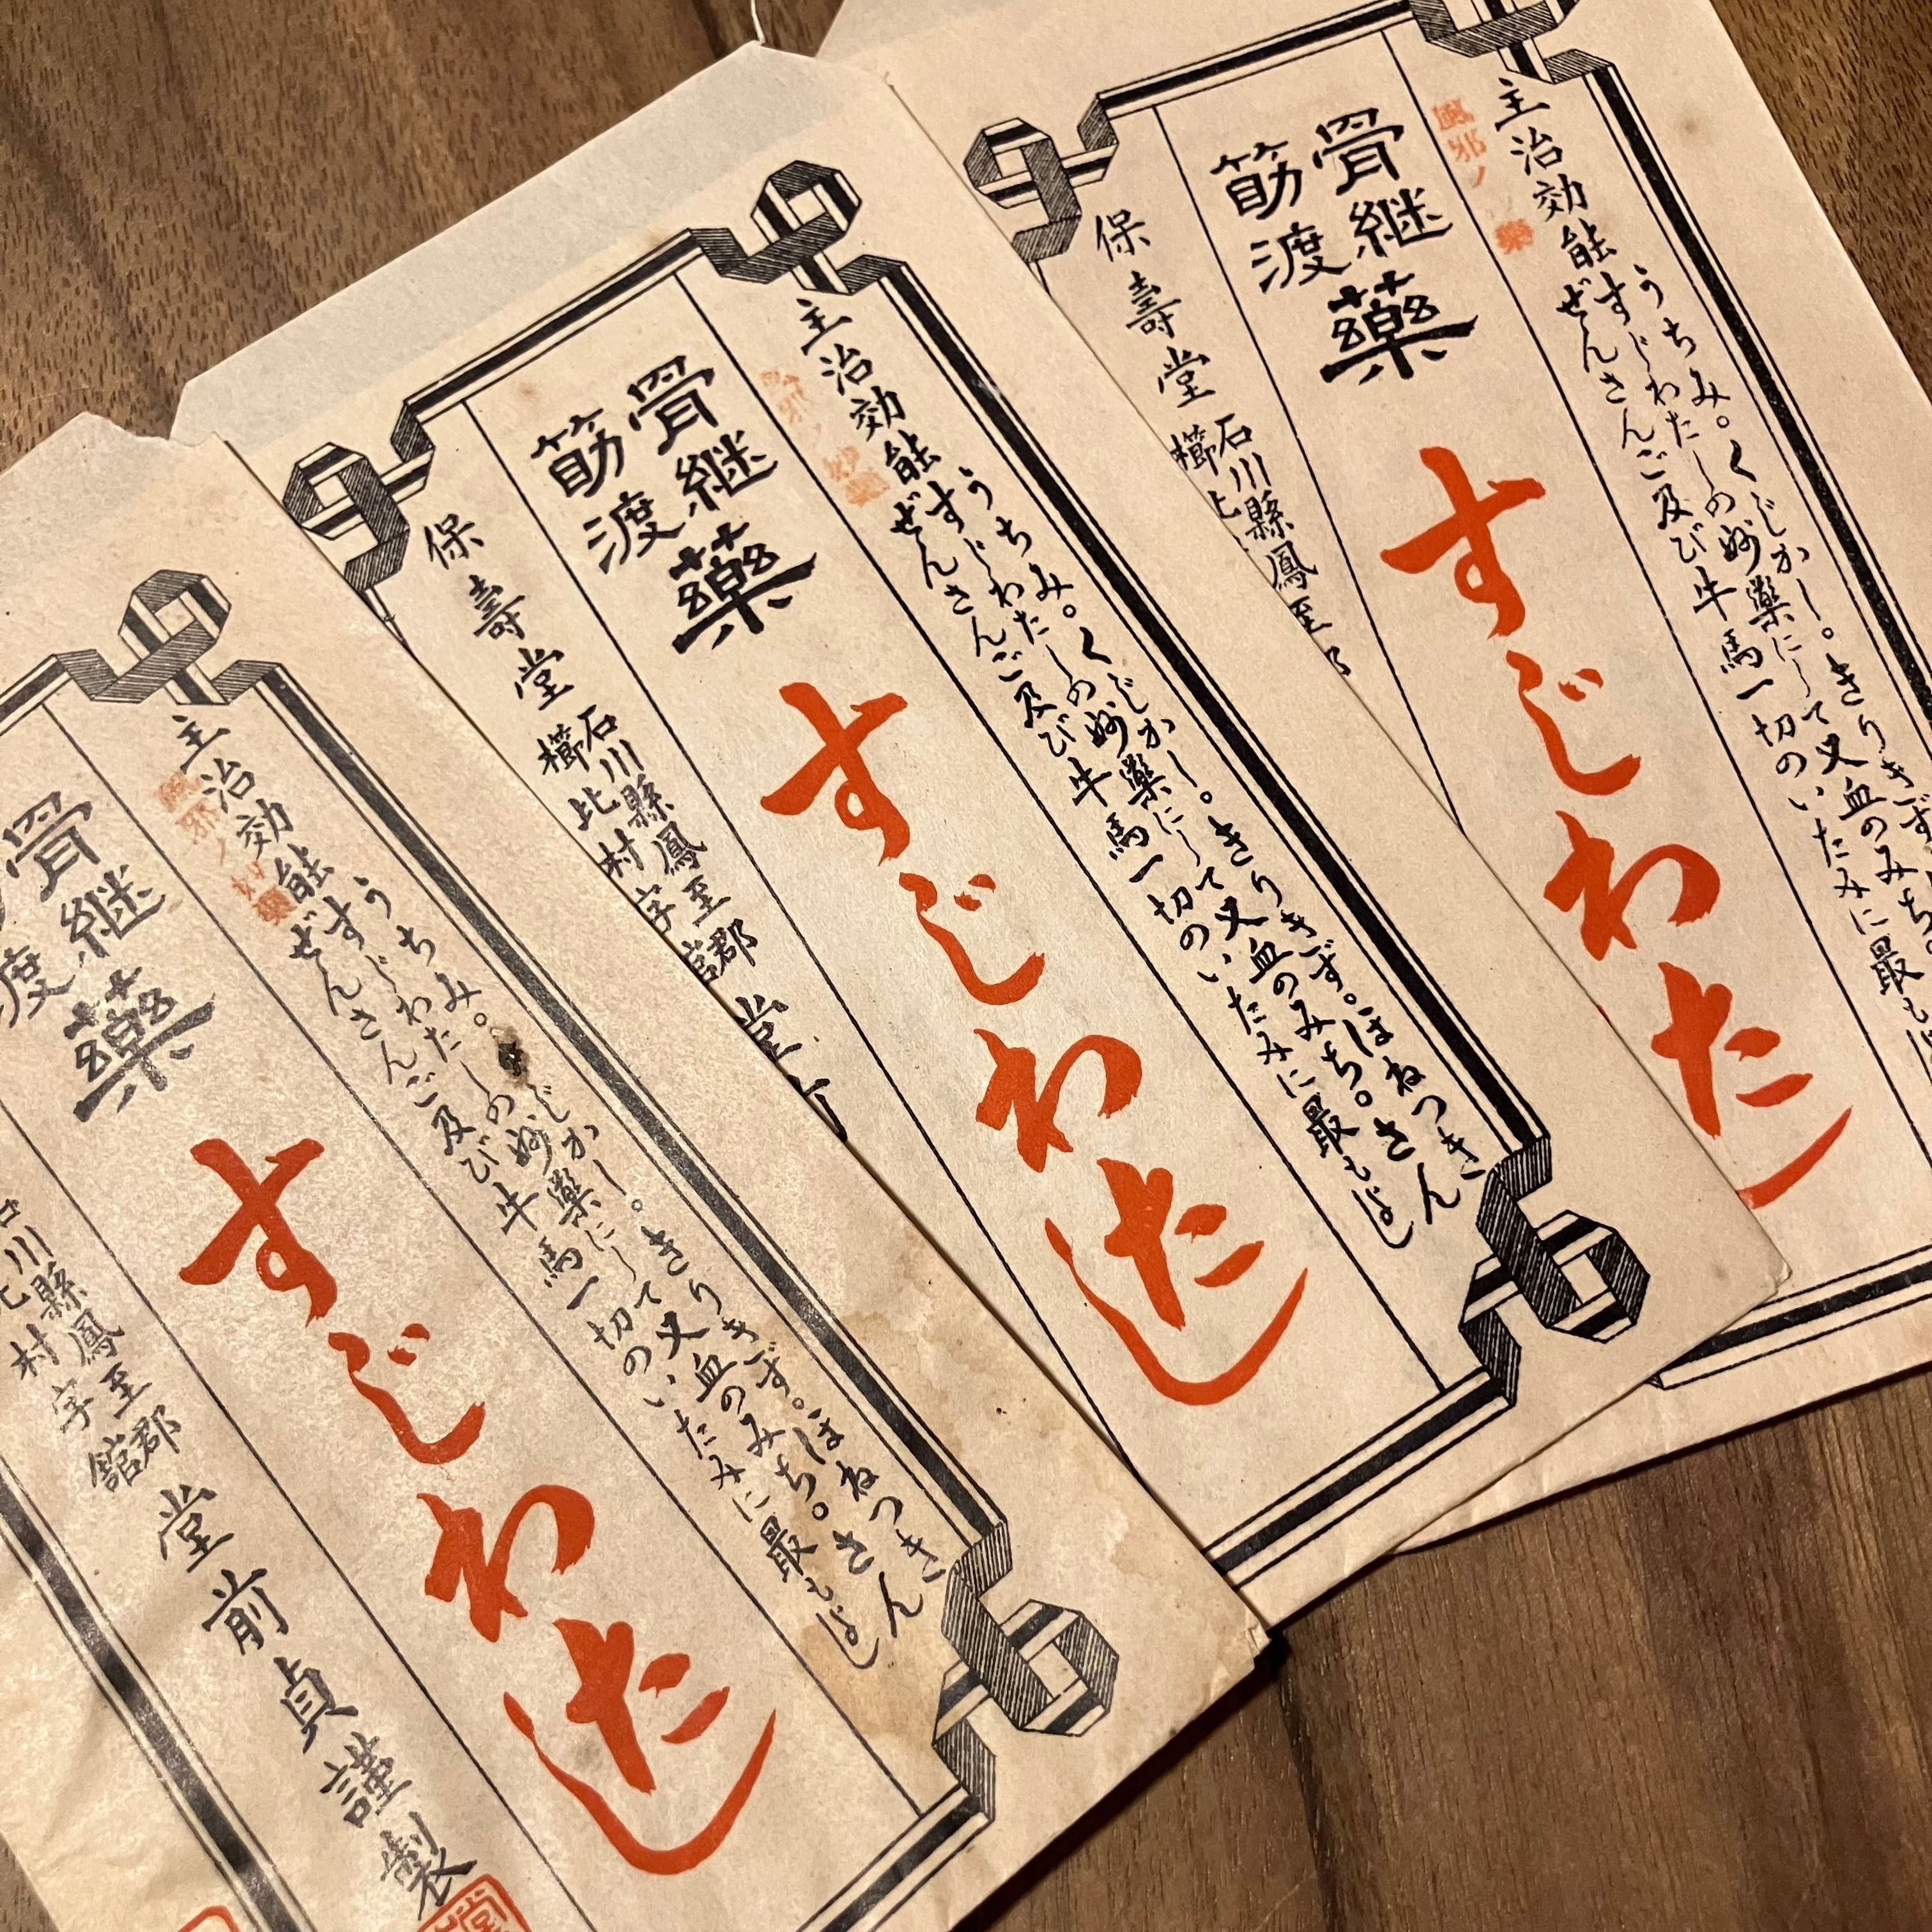 主治効能
うちみ。くじかし。きりきず。ほねつき
すじわたしの妙薬にして又血のみち。さん
ぜんさんご及び牛馬一切のいたみに最もよし
風邪ノ薬
骨継
筋渡
藥
すじわた
保壽堂
石川縣鳳至郡
櫛比
主治効能
うちみ。くじかし。きりきず。ほねつき
すじわたしの妙藥にして又血のみち。さん
ぜんさんご及び牛馬一切のいたみに最もよし
骨継
筋渡
藥
すじわたし
保壽堂
石川縣鳳至郡
櫛比村字舘
堂前
主治効能
うちみ。くじかし。きりきず。ほねつき
すじわたしの妙藥にして又血のみち。さん
ぜんさんご及び牛馬一切のいたみに最もよし
風邪ノ妙薬
骨継
渡
藥
すじわたし
石川縣鳳至郡
比村字舘
堂前貞謹製